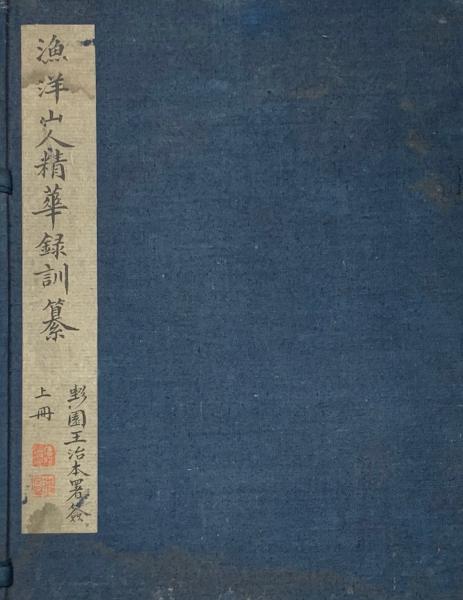 漁洋山人精華録訓纂
上冊
園王治本署簽